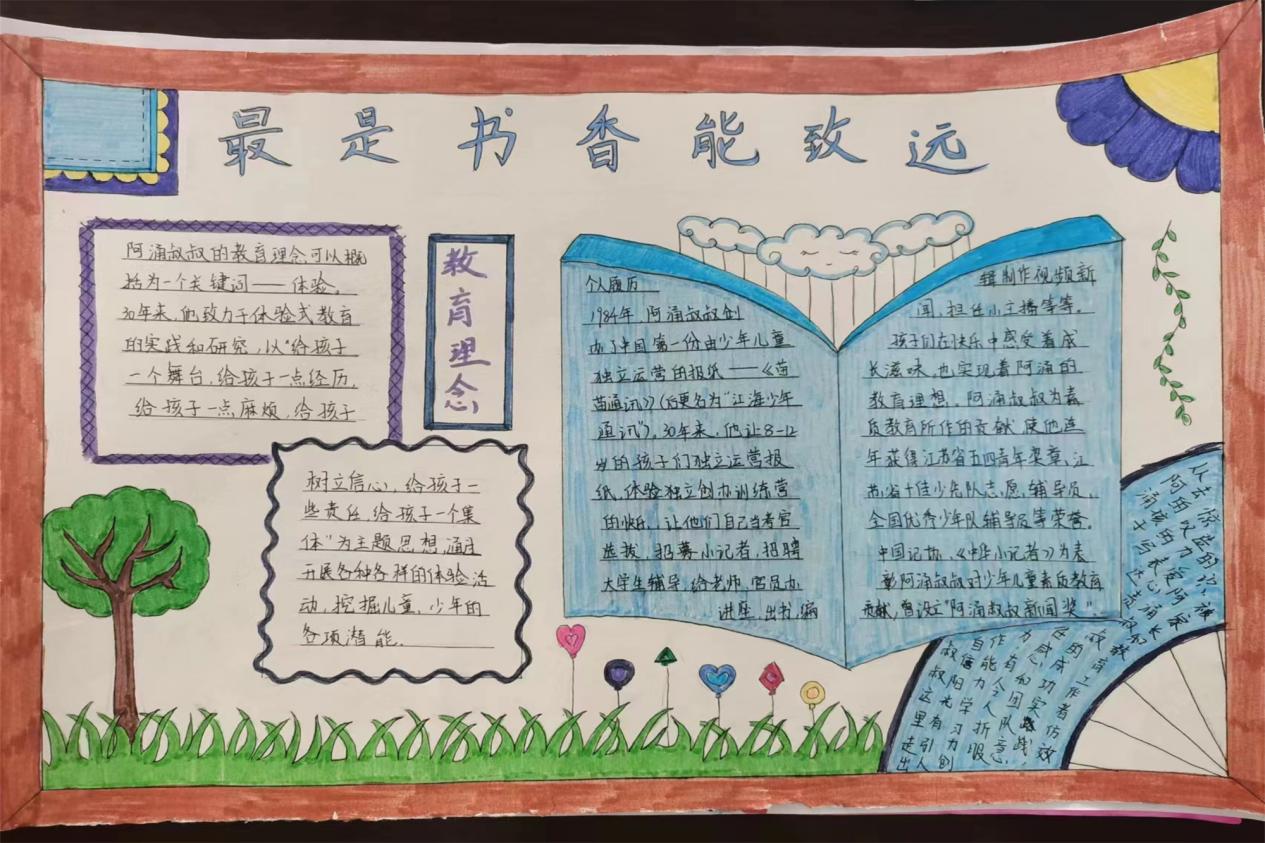 最是书香能致远
阿涌叔叔的教育理念可以概
括为一个关键词——体验。
30年来,他致力于体验式教育
的实践和研究,以“给孩子
一个舞台,给孩子一点经历,
给孩子一点麻烦,给孩子
教育理念
树立信心,给孩子一
些责任,给孩子一个集
体”为主题思想,通过
开展各种各样的体验活
动,挖掘儿童、少年的
各项潜能.
个人履历
1984年,阿涌叔叔创
办了中国第一份由少年儿童
独立运营的报纸——《苗
苗通讯》(后更名为“江海少年
通讯”)。30年来,他让8-12
岁的孩子们独立运营报
纸,体验独立创办训练营
的快乐,让他们自己当考官
选拔、招募小记者,招聘
大学生辅导,给老师、官员办
讲座,出书,编
辑制作视频新
闻,担任小主播等等。
孩子们在快乐中感受着成
长滋味,也实现着阿涌的
教育理想。阿涌叔叔为素
质教育所作的贡献,使他连
年获得江苏省五四青年奖章,江
苏省十佳少先队志愿辅导员,
全国优秀少年队辅导员等荣誉。
中国记协、《中华小记者》为表
彰阿涌叔叔对少年儿童素质教育
贡献,曾设立“阿涌叔叔新闻奖”